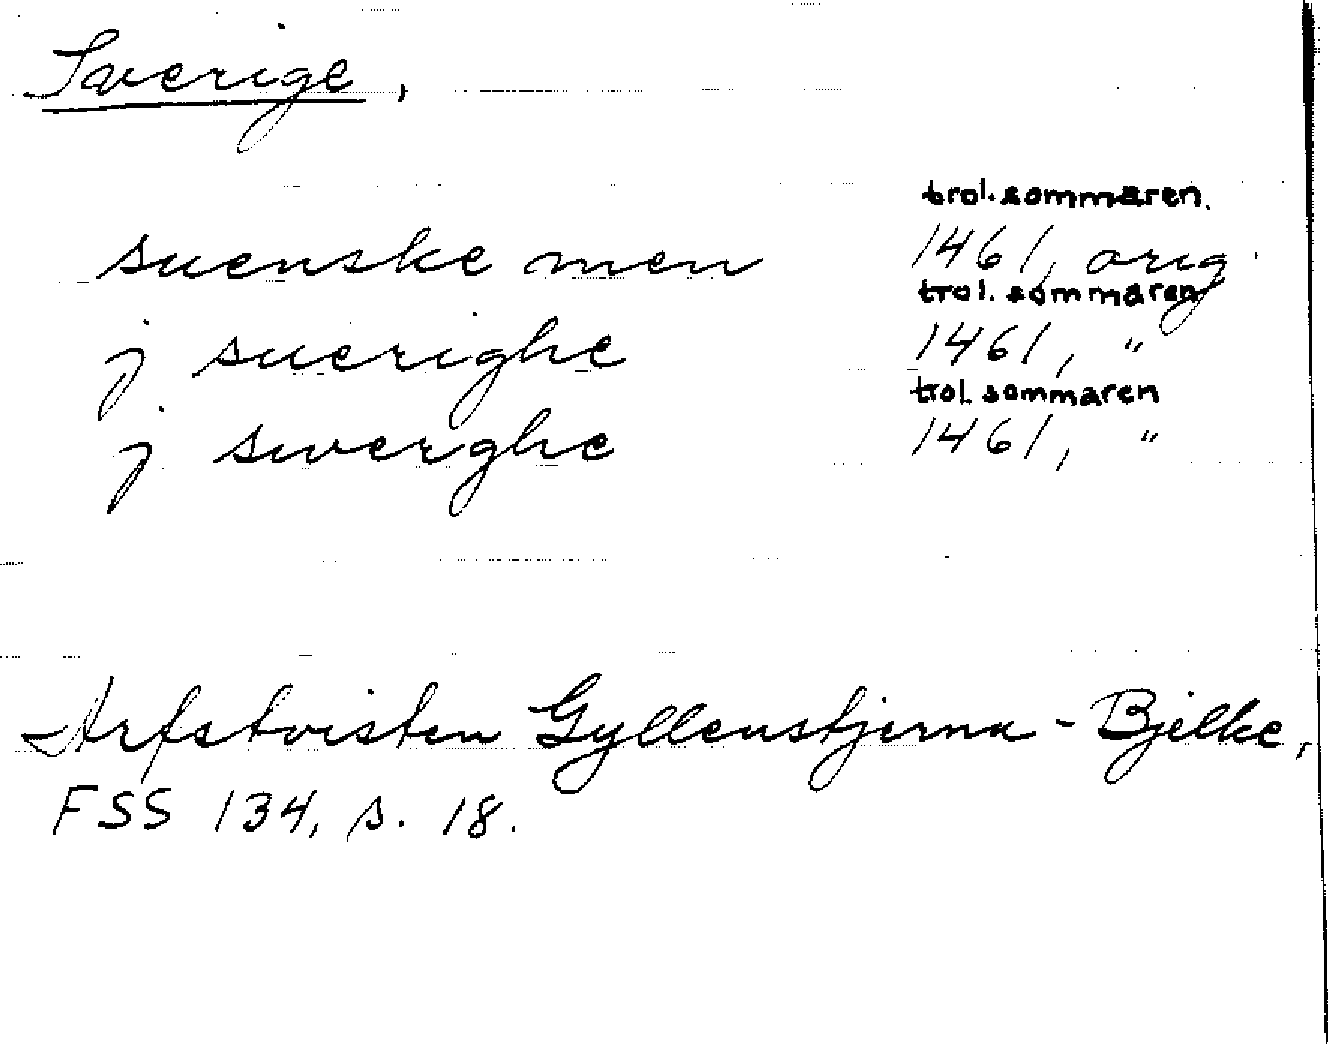 Sverige,
trol. sommaren.
suenske men 1461, orig.
trol. sommaren
j suerighe 1461, "
trol. sommaren
j swerghe 1461, "
Arfstvisten Gyllenstjerna - Bjelke,
FSS 134, s. 18.